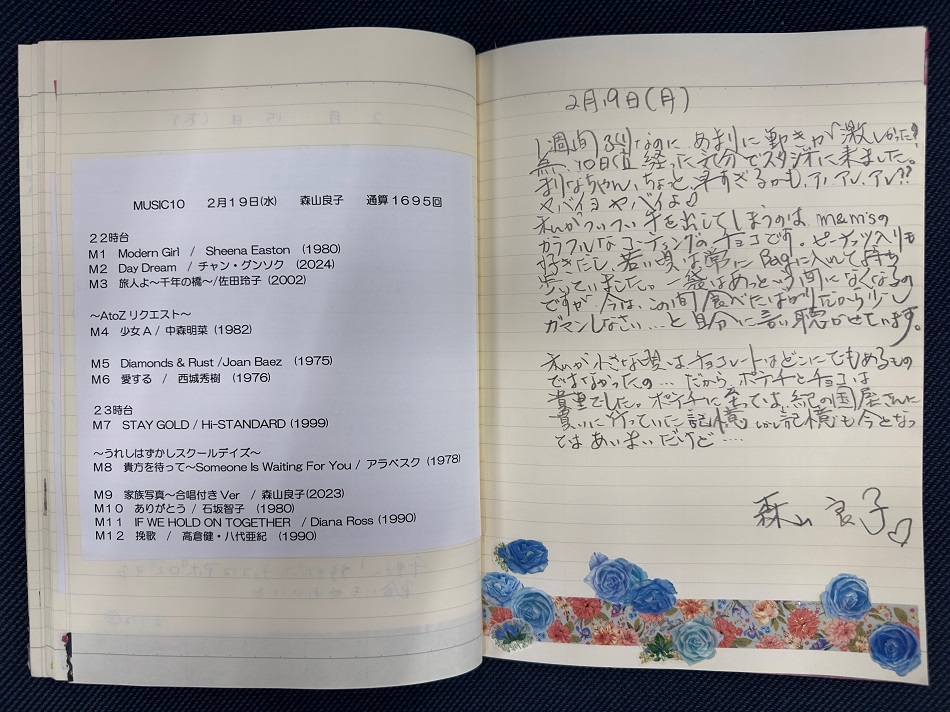 MUSIC10　2月19日(水)　森山良子　通算1695回
22時台
M1 Modern Girl / Sheena Easton (1980)
M2 Day Dream / チャン・グンソク (2024)
M3 旅人よ～千年の橋～/佐田玲子(2002)
～AtoZ リクエスト～
M4 少女A / 中森明菜 (1982)
M5 Diamonds & Rust /Joan Baez (1975)
M6 愛する / 西城秀樹 (1976)
23時台
M7 STAY GOLD / Hi-STANDARD (1999)
～うれしはずかしスクールデイズ～
M8 貴方を待って～Someone Is Waiting For You / アラベスク (1978)
M9 家族写真～合唱付き Ver / 森山良子(2023)
M10 ありがとう / 石坂智子 (1980)
M11 IF WE HOLD ON TOGETHER / Diana Ross (1990)
M12 挽歌 / 高倉健・八代亜紀 (1990)
2月19日(月)
1週間ぶりなのに あまりに動きが激しかった?
10日位 経った気分でスタジオに来ました。
まりなちゃん、ちょと、早すぎるかも、ア、アレ、アレ??
ヤバイヨ ヤバイよ♪
私がついつい手を出してしまうのは m&m'sの
カラフルな コーティングの チョコです。ピーナッツ入りも
好きだし、若い頃は常に Bagに入れて持ち
歩いていました。一袋はあっと言う間になくなるの
ですが 今は、この間食べたばかりだから少し
ガマンしなさい…と自分に言い聴かせています。
私が小さな頃は、チョコレートはどこにでもあるもの
ではなかったの… だから、ポテチとチョコは
貴重でした。ポテチに至っては、紀の国屋さんに
買いに行っていた記憶 しかし記憶も今となっ
てはあいまいだけど….
森山良子♡